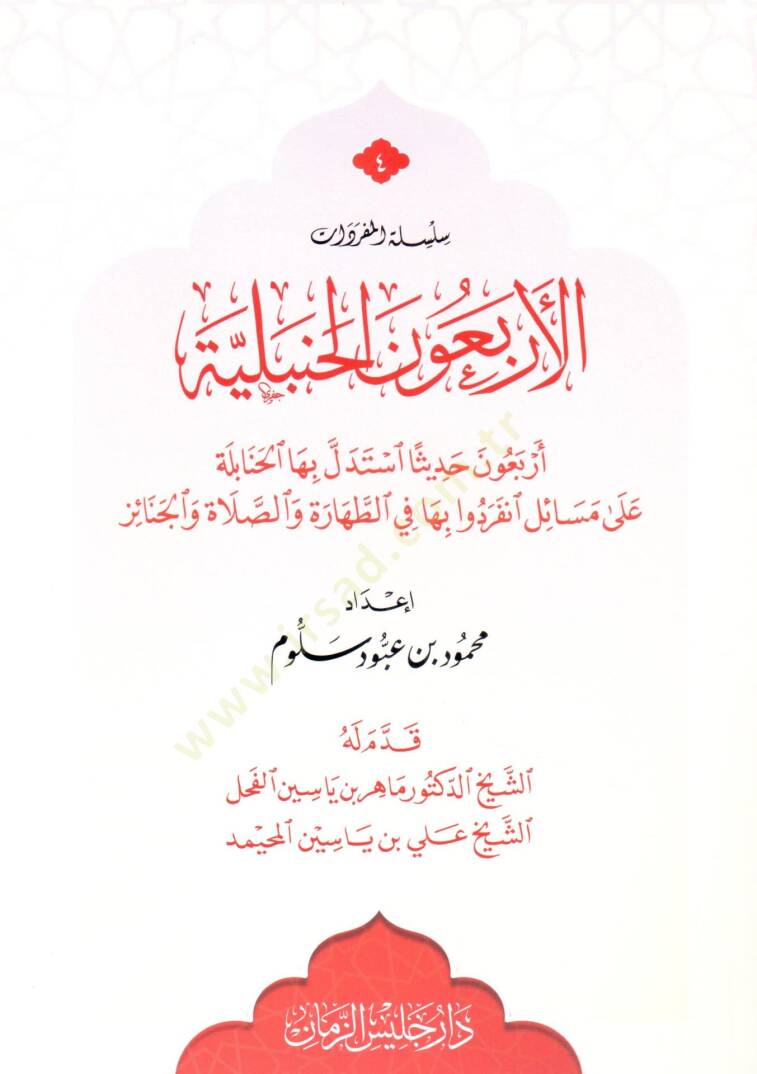 ٤
سلسلة المفردات
الأربعون الحنبلية
أَرْبَعُونَ حَدِيثًا ٱسْتَدَلَّ بِهَا ٱلحَنَابِلَة
عَلَىٰ مَسَائِل ٱنْفَرَدُوا بِهَا فِي ٱلطَّهَارَة وَٱلصَّلَاة وَٱلجَنَائِز
إعْدَاد
محمود بن عبُّود سلُّوم
قَدَّمَ لَهُ
ٱلشَّيْخ ٱلدّكتُور مَاهِر بن يَاسِين ٱلفَحل
ٱلشَّيْخ عَلي بن يَاسِيْن ٱلمحيْمد
دار جليس الزمان
www.irsad.com.tr